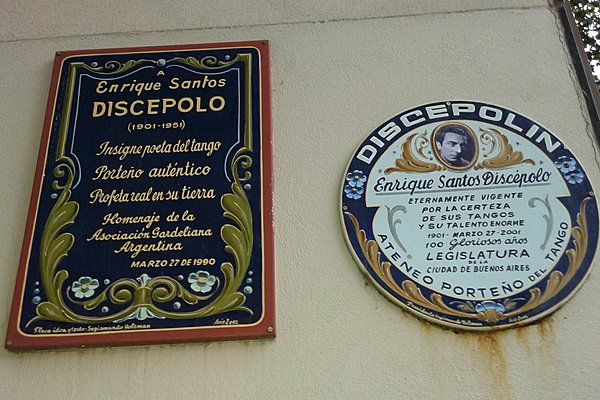 A
Enrique Santos
DISCEPOLO
(1901-1951)
Insigne poeta del tango
Porteño auténtico
Profeta real en su tierra
Homenaje de la
Asociación Gardeliana
Argentina
MARZO 27 DE 1990
Placa idea y texto: Segismundo Holzman
DISCÉPOLIN
Enrique Santos Discépolo
ETERNAMENTE VIGENTE
POR LA CERTEZA
DE SUS TANGOS
Y SU TALENTO ENORME
1901 - MARZO 27 - 2001
100 Gloriosos años
LEGISLATURA
DE LA
CIUDAD DE BUENOS AIRES
ATENEO PORTEÑO DEL TANGO